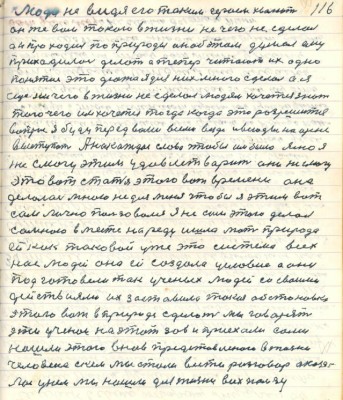 116
Люди не видя его таким сделал хочет
он же вам такого в жизни не чего не сделал
он проходил по природи он обтоял думал ему
приходилось делат а тепер читают их одно
понятия это деталя для них много сделал а я
еще ни чего в жизни не сделал людям хочется знат
того чего им хочется тогда когда это разрешится
я буду перед вами всеми везде и всюду на арене
выступат Я на каждая слово чтобы им было ясно я
не смогу этим удовлетварит они ни могу
Это вот стат этого вот времени она
делалас много не для меня чтобы я этим вот
сам лично пользовался Я не сам этого делал
со мною вместе на ряду ишла мат природа
ей как таковой уже это система всех
нас людей она ей создала условие а они
подготовели так ученых людей со своими
действиями их заставило такая обстановка
этого вот в природе сделат мы говорят
эти ученои на этот зов и приехали сами
нашли этого вновь представленова в жизни
человека с кем мы стали вести разговор оказа-
лос у нем мы нашли для жизни всех ползу